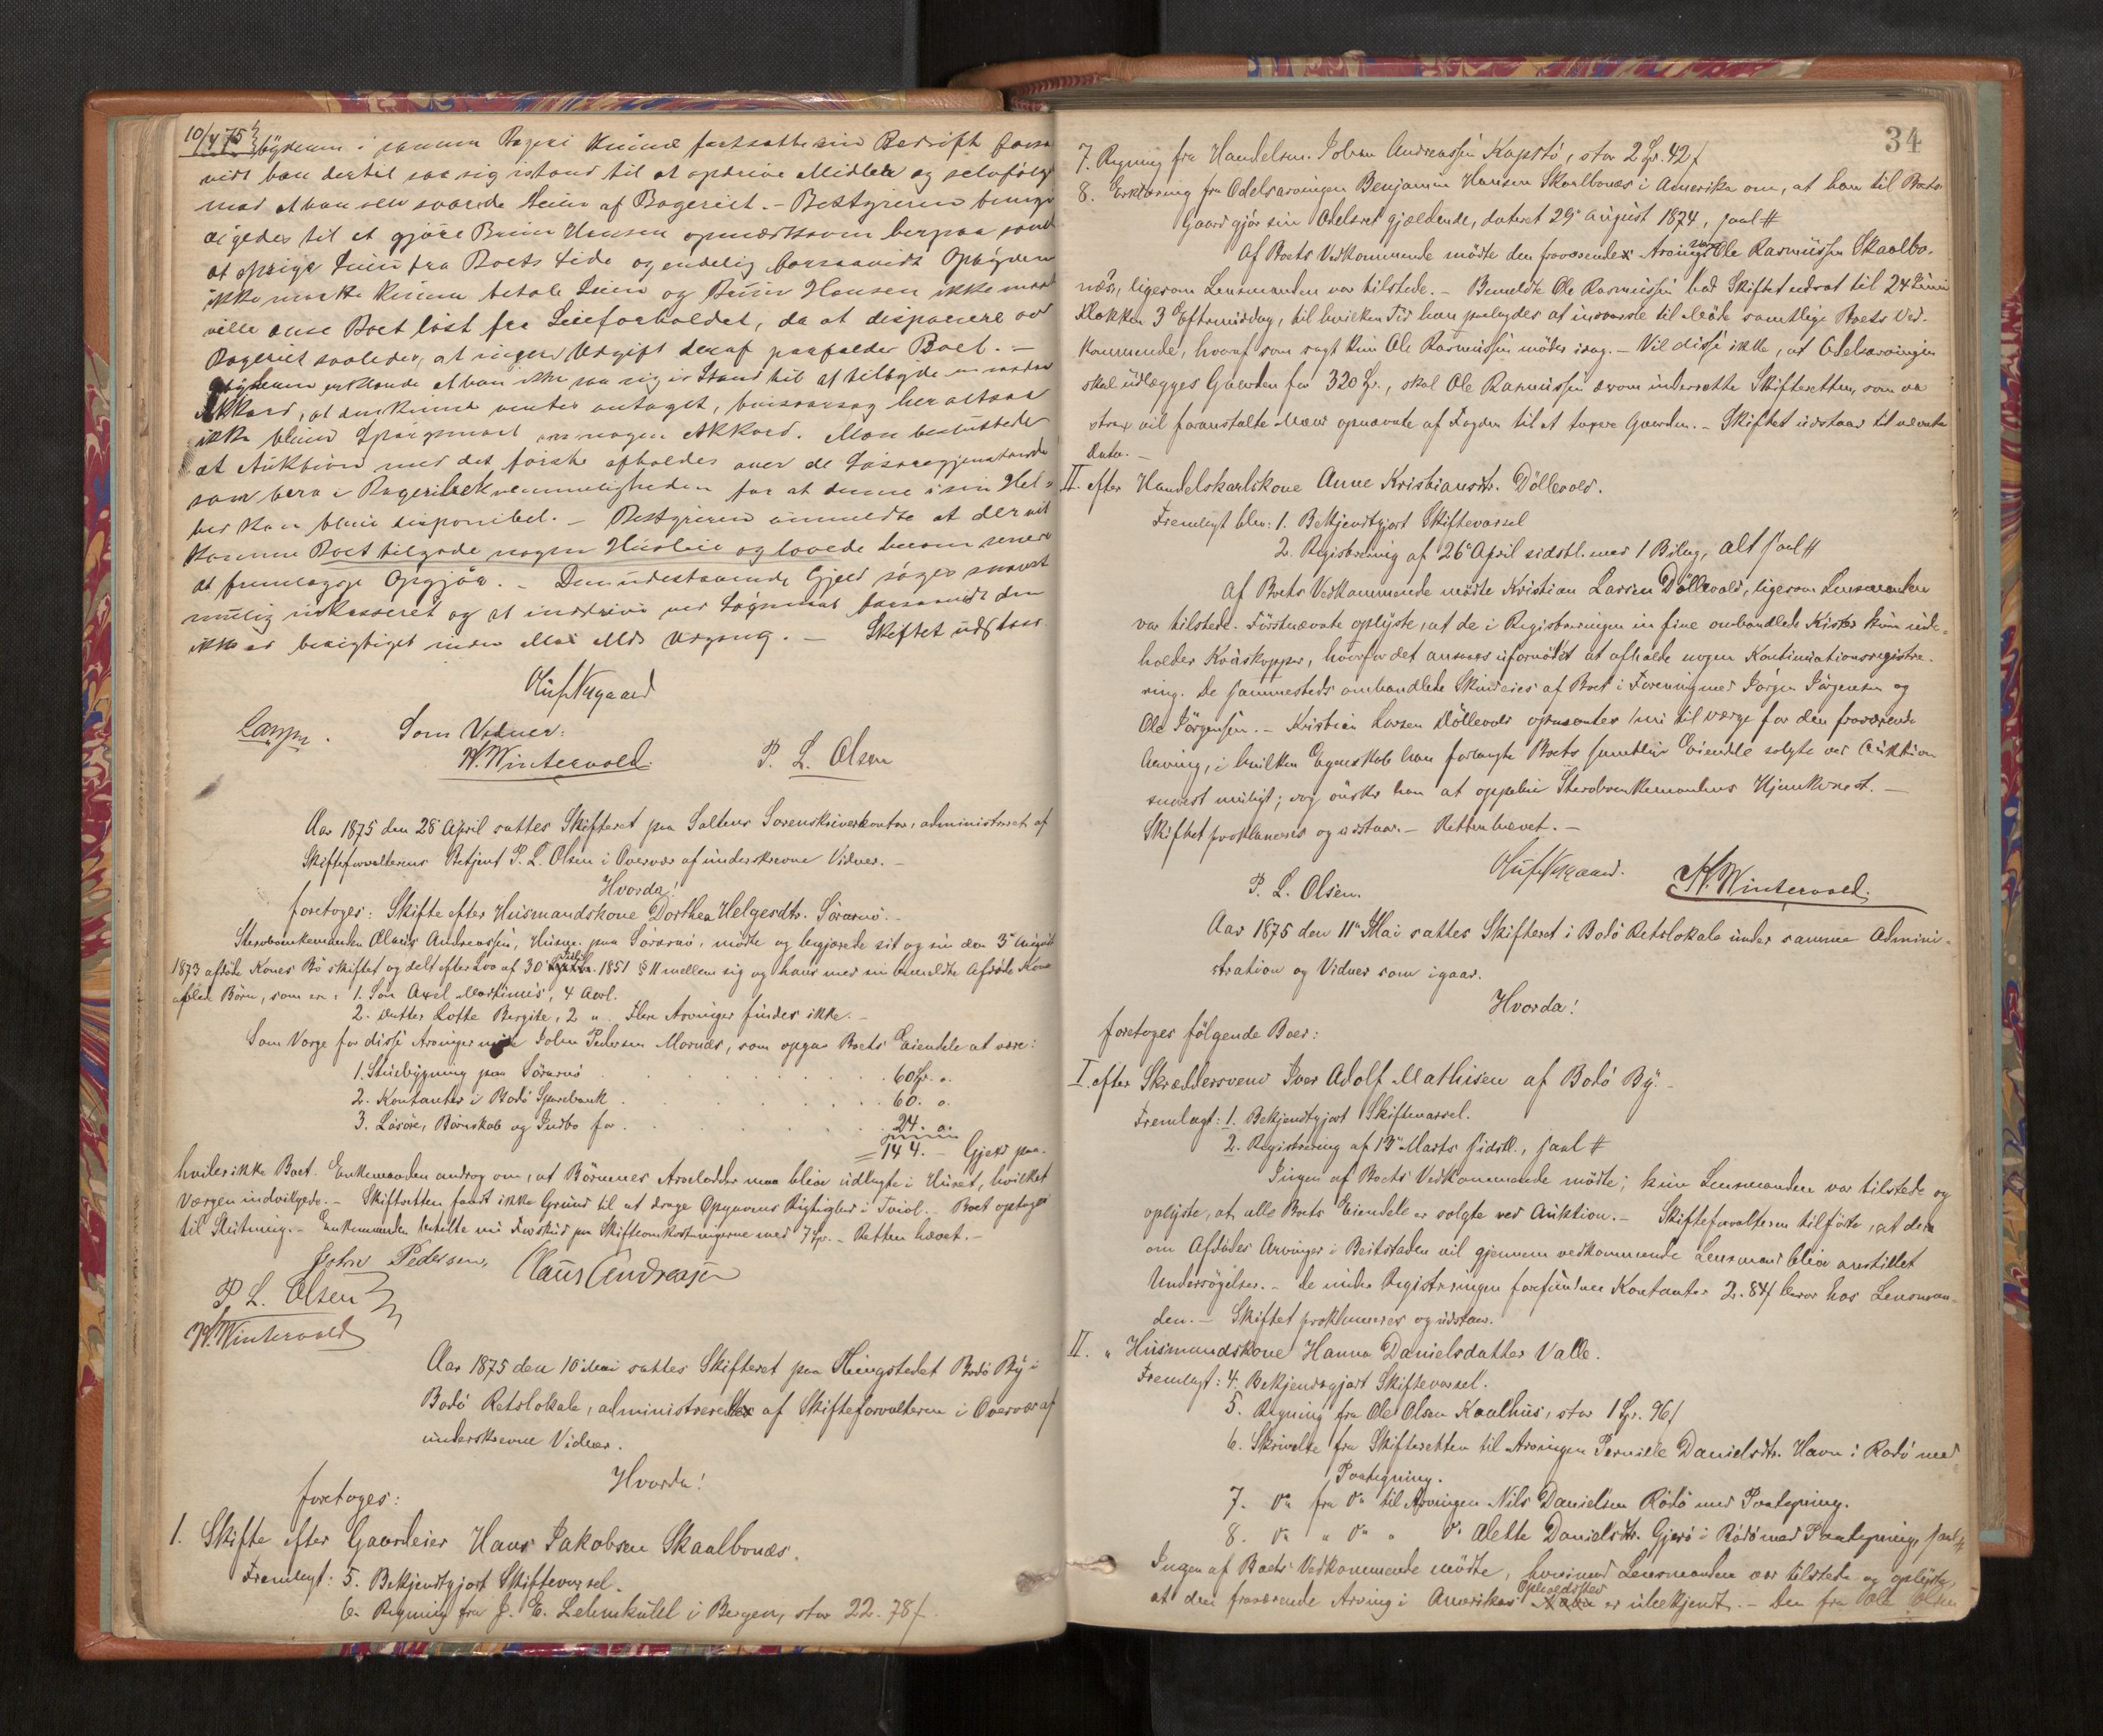 10/4 75
bydenn i samme Bageri kunne fortsætte sin Bedrift forsaa
vidt han dertil saa sig istand til at opdrive Midler og selvfølgelig
mod at han selv svarede Leien af Bageriet. – Bestyreren bemyn-
digedes til at gjøre Bruun Hansen opmærksom herpaa samt
at opsige Leien fra Boets Side og endelig forsaavidt Opbyderen
ikke maatte kunne betale Leien og Bruun Hansen ikke maatte
ville anse Boet løst fra Leieforholdet, da at disponere over
Bageriet saaledes, at ingen Udgift deraf paafalder Boet. –
erklærede at han ikke saa sig i Stand til at tilbyde en saadan
Akkord, at den kunde ventes antaget, hvisaarsag her altsaa
ikke bliver Spørgsmaal om nogen Akkord. Man besluttede
at Auktion med det første afholdes over de Løsøregjenstande
som bero i Bageribekvemmeligheden for at denne i sin Hel-
hed kan blive disponibel. – Bestyreren anmeldte at der vil
komme Boet tilgode nogen Husleie og lovede herom senere
at fremlægge Opgjør. – Den udestaaende Gjæld søges snarest
mulig inkasseret og at inddrive ved Søgsmaal forsaavidt den
ikke er berigtiget inden Mai Mds Udgang. – Skiftet udstaar.
Som Vidner:
W. Wintervold. P. L. Olsen
Aar 1875 den 28 April sattes Skifteret paa Saltens Sorenskriverkontor, administreret af
Skifteforvalterens Betjent P. L. Olsen i Overvær af underskrevne Vidner. –
Hvorda!
foretoges: Skifte efter Husmandskone Dorthea Helgesdtr. Sørarnø. –
Sterboenkemanden Claus Andreassen, Husm. paa Sørarnø, mødte og begjærede sit og sin den 3die August
1873 afdøde Kones Bo skiftet og delt efter Lov af 30 Juli 1851 § 11 mellem sig og hans med sin bemeldte Afdøde Kone
aflede Børn, som ere: 1. Søn Axel Martinius, 4 Aarl.
2. Datter Lotte Bergite, 2 " . Flere Arvinger findes ikke. –
Som Værge for disse Arvinger mødte John Pedersen Mornæs, som opgav Boets Eiendele at være:
1. Stuebygning paa Sørarnø . . . . . 60 Sp. ".
2. Kontanter i Bodø Sparebank . . . . . 60. ".
3. Løsøre, Børnskab og Indbo for . . . . . 24. ".
= 144. – Gjæld paa-
hviler ikke Boet. Enkemanden androg om, at Børnenes Arvelodder maa blive udlagte i Huset, hvilket
Værgen indvilgede. – Skifteretten fandt ikke Grund til at drage Opgavens Rigtighed i Tvivl. – Boet optoges
til Slutning. – Enkemanden betalte nu Forskud paa Skifteomkostningerne med 7 Sp. – Retten hævet. –
John Pedersen, Claus Andreasen
P. L. Olsen
W. Wintervold
Aar 1875 den 10de Mai sattes Skifteret paa Thingstedet Bodø By i
Bodø Retslokale, administreret af Skifteforvalteren i Overvær af
underskrevne Vidner.
Hvorda!
foretoges:
1. Skifte efter Gaardeier Hans Jakobsen Skaalbonæs.
Fremlagt: 5. Bekjendtgjort Skiftevarsel.
6. Regning fra J. E. Lehmkuhl i Bergen, stor 22. 78 ſ.
34
7. Regning fra Handelsm. Johan Andreassen Kopstø, stor 2 Sp. 42 ſ
8. Erklæring fra Odelsarvingen Benjamin Hansen Skaalbonæs i Amerika om, at han til Boets
Gaard gjør sin Odelsret gjældende, dateret 29de August 1874, saal #
Af Boets Vedkommende mødte den fraværende Arvings Værge Ole Rasmussen Skaalbo-
næs, ligesom Lensmanden var tilstede. – Bemeldte Ole Rasmussen bad Skiftet udsat til 24 Juni
Klokken 3 Eftermiddag, til hvilken Tid han paalagdes at indvarsle til Møde samtlige Boets Ved-
kommende, hvoraf som sagt kun Ole Rasmussen møder idag. – Vil disse ikke, at Odelsarvingen
skal udlægges Gaarden for 320 Sp., skal Ole Rasmussen derom underrette Skifteretten, som da
strax vil foranstalte Mænd opnævnte af Fogden til at taxere Gaarden. – Skiftet udstaar til nævnte
Dato. –
II. efter Handelskarlskone Anne Kristiansdtr. Döllevold.
Fremlagt blev: 1. Bekjendtgjort Skiftevarsel
2. Registrering af 26de April sidstl. med 1 Bilag, alt saal #
Af Boets Vedkommende mødte Kristian Larsen Döllevold, ligesom Lensmanden
var tilstede. Førstnævnte oplyste, at de i Registreringen in fine omhandlede Kister kun inde-
holder Kruskopper, hvorfor det ansees ufornødent at afholde nogen Kontinuationsregistre-
ring. De sammesteds omhandlede Skind eies af Boet i Forening med Jørgen Jørgensen og
Ole Jørgensen. – Kristian Larsen Döllevold opnævntes nu til Værge for den fraværende
Arving, i hvilken Egenskab han forlangte Boets samtlige Eiendele solgte ved Auktion
snarest muligt; dog ønsker han at oppebie Sterboenkemandens Hjemkomst. –
Skiftet proklameres og udstaar. – Retten hævet. –
P. L. Olsen. W. Wintervold.
Aar 1875 den 11te Mai sattes Skifteret i Bodø Retslokale under samme Admini-
stration og Vidner som igaar.
Hvorda!
foretoges følgende Boer:
I. efter Skræddersvend Iver Adolf Mathisen af Bodø By. –
Fremlagt: 1. Bekjendtgjort Skiftevarsel.
2. Registrering af 13de Marts sidstl., saal #
Ingen af Boets Vedkommende mødte; kun Lensmanden var tilstede og
oplyste, at alle Boets Eiendele er solgte ved Auktion. – Skifteforvalteren tilførte, at der
om Afdødes Arvinger i Beitstaden vil gjennem vedkommende Lensmand blive anstillet
Undersøgelser. – De under Registreringen forefundne Kontanter 2. 84 ſ beror hos Lensman-
den. – Skiftet proklameres og udstaar.
II. " Husmandskone Hanna Danielsdatter Valle.
Fremlagt: 4. Bekjendtgjort Skiftevarsel.
5. Regning fra Ole Olsen Kaalhus, stor 1 Sp. 96 ſ
6. Skrivelse fra Skifteretten til Arvingen Pernille Danielsdtr. Havn i Rødø med
Paategning.
7. Do fra Do til Arvingen Nils Danielsen Rødø med Paategning.
8. Do " Do " Do Alette Danielsdtr. Gjerø i Rødø med Paategning, saal #
Ingen af Boets Vedkommende mødte, hvorimod Lensmanden var tilstede og oplyste,
at den fraværende Arving i Amerikas Opholdssted er ubekjendt. – Den fra Ole Olsen